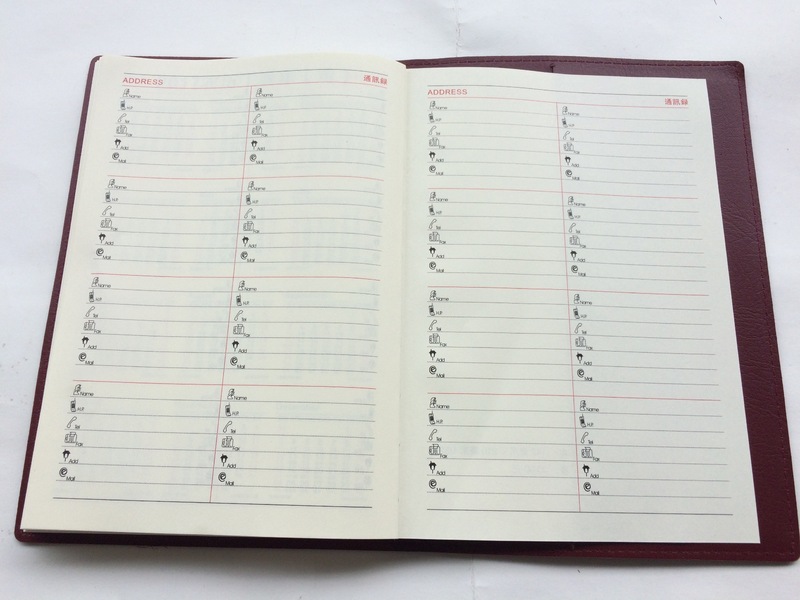 ADDRESS 通訊錄
Name Name
H.P. H.P.
Tel Tel
Fax Fax
Add Add
Mail Mail
Name Name
H.P. H.P.
Tel Tel
Fax Fax
Add Add
Mail Mail
Name Name
H.P. H.P.
Tel Tel
Fax Fax
Add Add
Mail Mail
Name Name
H.P. H.P.
Tel Tel
Fax Fax
Add Add
Mail Mail
ADDRESS 通訊錄
Name Name
H.P. H.P.
Tel Tel
Fax Fax
Add Add
Mail Mail
Name Name
H.P. H.P.
Tel Tel
Fax Fax
Add Add
Mail Mail
Name Name
H.P. H.P.
Tel Tel
Fax Fax
Add Add
Mail Mail
Name Name
H.P. H.P.
Tel Tel
Fax Fax
Add Add
Mail Mail